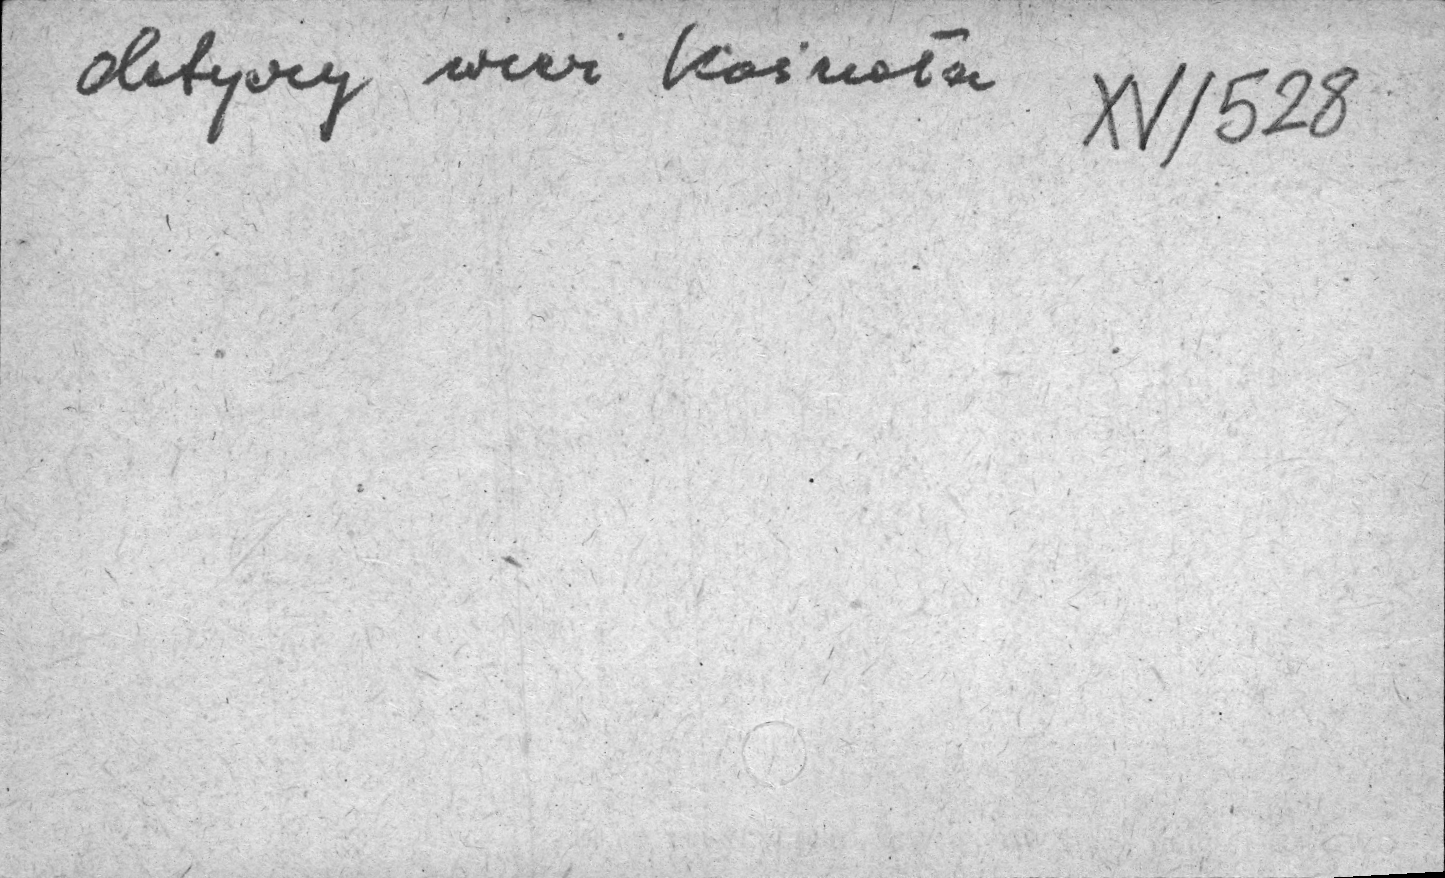 dotyczy wsi Kośnoła XV/528